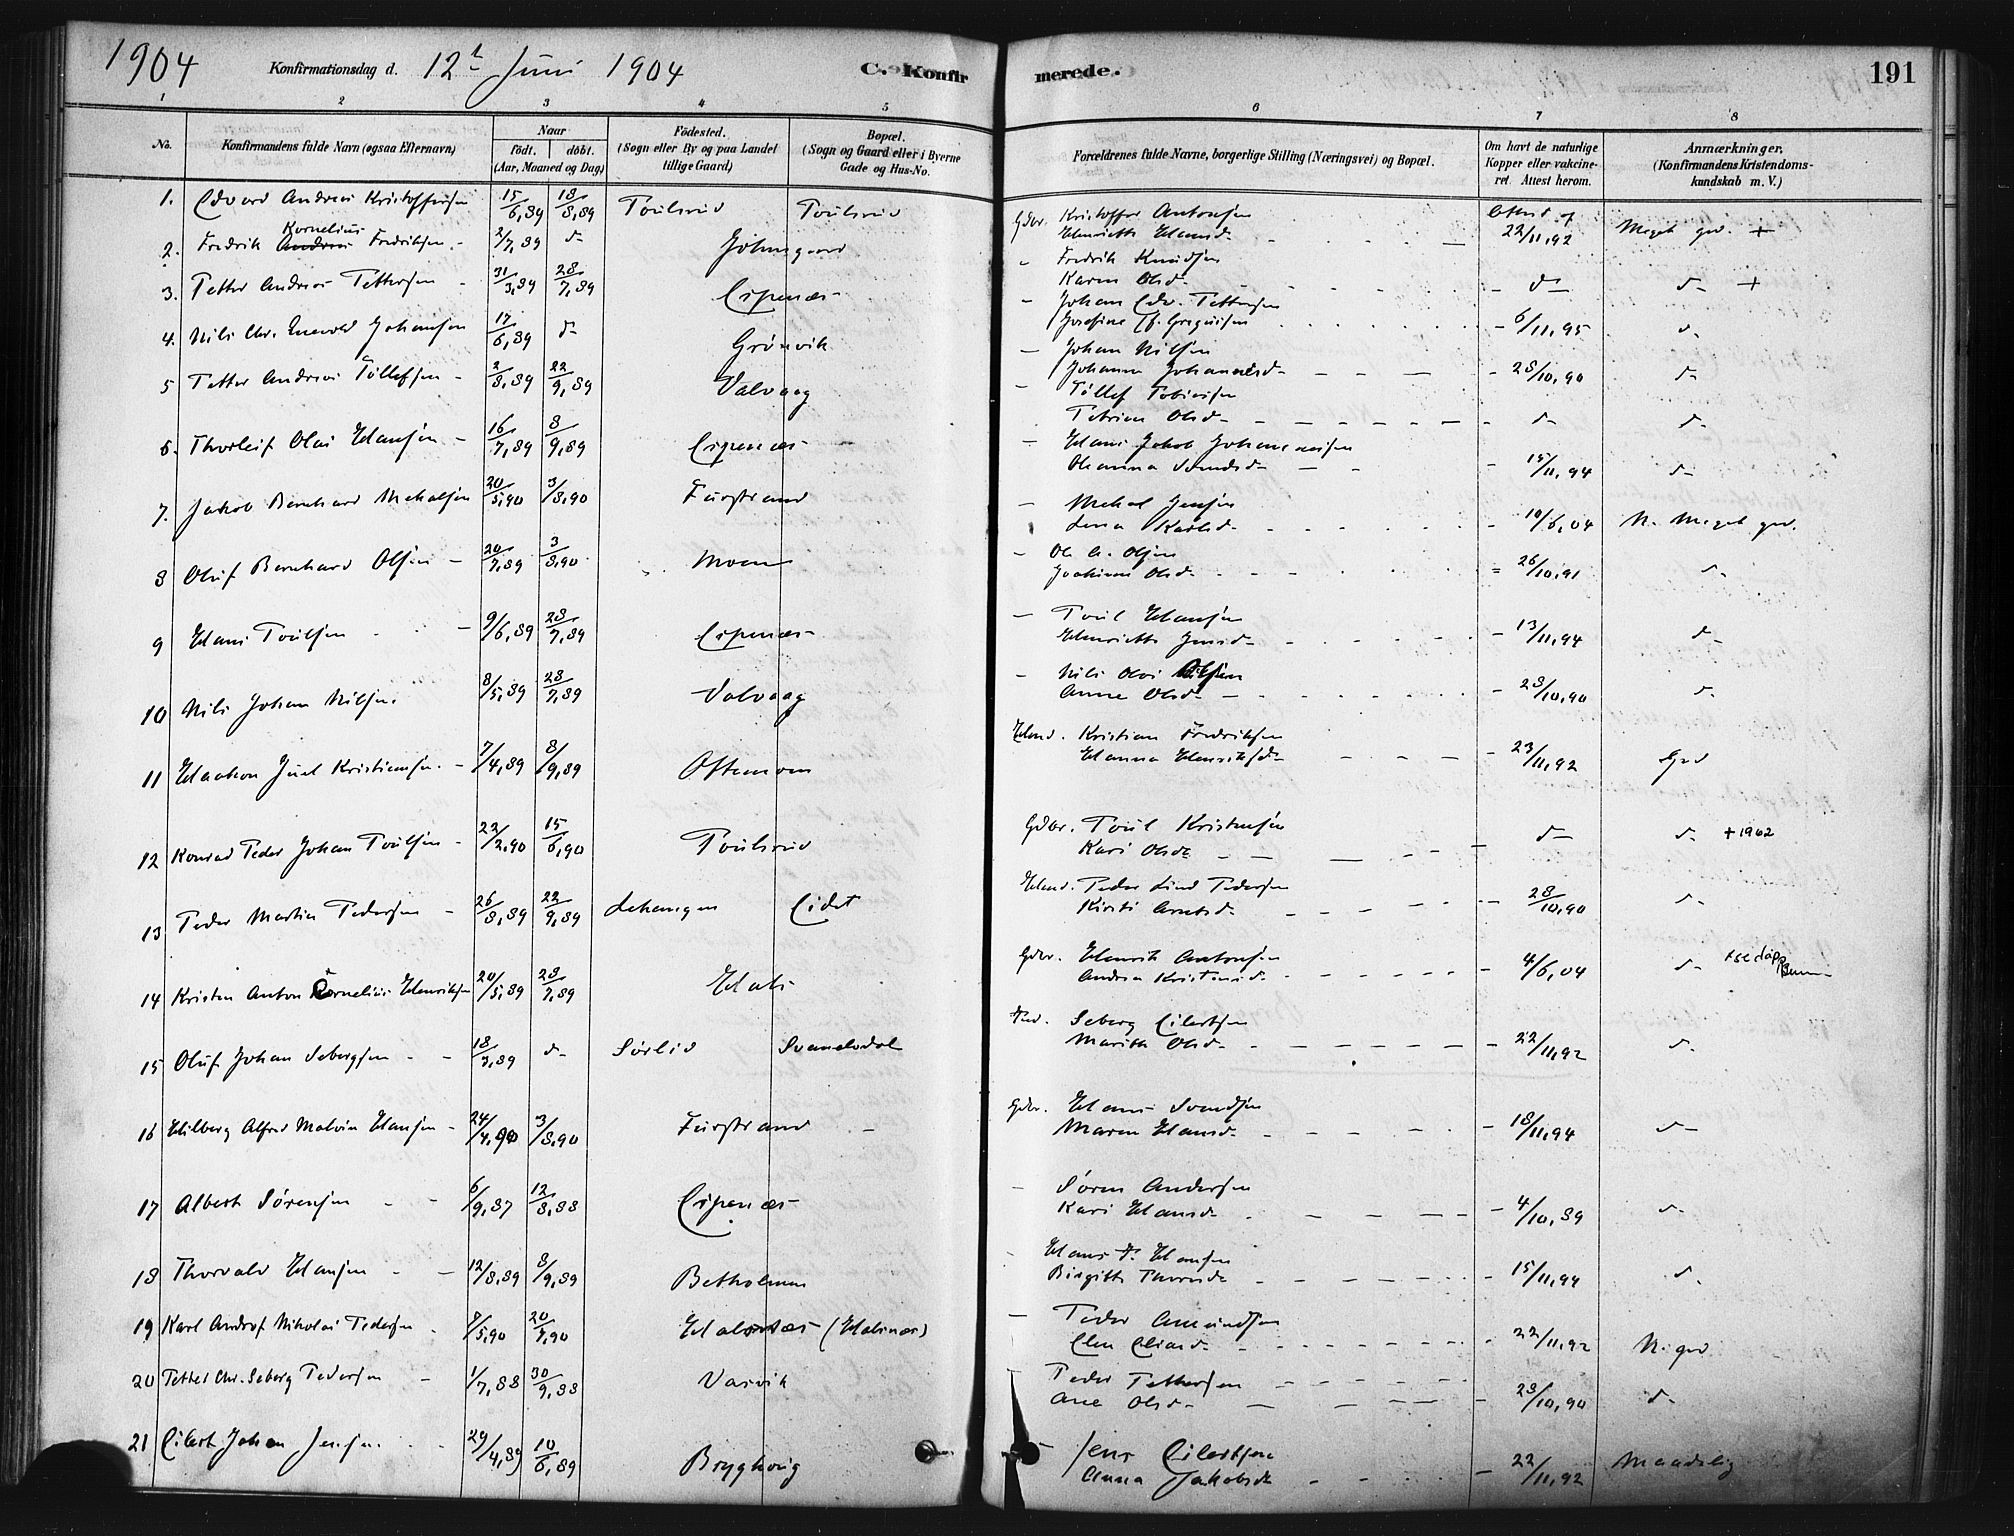 1904 Konfirmationsdag d. 12t Juni 1904 C. Konfirmerede. 191
1 2 3 4 5 6 7 8
No. Konfirmandens fulde Navn (ogsaa Efternavn) Naar Födt. döbt. (Aar, Moaned og Dag) Födested. (Sogn eller By og paa Landet tillige Gaard) Bopæl. (Sogn og Gaard eller i Byerne Gade og Hus-No. Forældrenes fulde Navne, borgerlige Stilling (Næringsvei) og Bopæl. Om havt de naturlige Kopper eller vakcineret. Attest herom. Anmærkninger, (Konfirmandens Kristendomskundskab m. V.)
1. Edvard Andreas Kristoffersen 15/6,89 18/8,89 Poulsrud Poulsrud Gdbr. Kristoffer Antonsen
Henriette Hansd. 22/11,92 Meget god +
2. Fredrik Kornelius Fredriksen 2/7,89 d- - Fredrik Knudsen
Karen Olsd. d- d- +
3. Petter Andreas Pettersen 31/3,89 28/7,89 Espenæs - Johan Edv. Pettersen
6/11,95 d-
4. Nils Chr. Enevold Johansen 17/6,89 d- Grönvik - Johan Nilsen
Johanna Johannesd. 28/10,90 d-
5 Petter Andreas Töllefsen 2/8,89 22/9,89 Valvaag - Töllef Tobiasen
Petrine Olsd. d- d-
6. Thorleif Olai Hansen 16/7,89 8/9,89 Espenæs - Hans Jakob Johannesen
15/11,94 d-
7. Jakob Bernhard Mekalsen 20/5,90 3/8,90 Furstrand - Mekal Jensen
Lena Karlsd. 10/6,04 N. Meget god.
8 Oluf Bernhard Olsen 20/7,89 3/8,90 Moen - Ole A. Olsen
Joakime Olsd. 26/10,91 d-
9 Hans Poulsen 9/6,89 28/7,89 Espenæs - Poul Hansen
Henriette Jensd. 13/11,94 d-
10 Nils Johan Nilsen. 8/5,89 28/7,89 Valvaag - Nils Olai Nilsen
Anne Olsd. 28/10,90 d-
11 Haakon Juel Kristiansen. 7/4,89 8/9,89 Oftemoen Hmd. Kristian Fredriksen
Hanna Henriksd. 23/11,92 God
12 Konrad Peder Johan Poulsen 22/2,90 15/6,90 Poulsrud Gdbr. Poul Kristensen
Kari Olsd. d- d- +1962
13 Peder Martin Pedersen 26/8,89 22/9,89 Lekangen Eidet Hmd. Peder Lind Pedersen
Kirsti Arntsd. 28/10,90 d-
14 Kristen Anton Cornelius Henriksen 20/5,89 28/7,89 Hals Gdbr. Henrik Antonsen
Andrea Kristensd. 4/6,04 d-
15 Oluf Johan Sebergsen 18/3,89 d- Sörlid Svanelvdal Ind. Seberg Eilertsen
Marith Olsd. 22/11,92 d-
16 Hilberg Alfred Malvin Hansen 24/4,90 3/8,90 Furstrand Gdbr. Hans Svendsen
Maren Hansd. 18/11,94 d-
17 Albert Sörensen 6/9,87 12/8,88 Espenæs - Sören Andersen
Kari Hansd. 4/10,89 d-
18 Thorvald Hansen 12/8,89 8/9,89 Betholmen - Hans P. Hansen
15/11,94 d.
19 Karl Andref Nikolai Pedersen 7/5,90 20/7,90 Halsnæs (Halsnæs) - Peder Amundsen
Elen Eliasd. 22/11,92 N. god
20 Petter Chr. Seberg Pedersen 1/7,88 30/9,88 Vasvik - Peder Pettersen
Ane Olsd. 28/10,90 d.
21 Eilert Johan Jensen. 29/4,89 10/6,89 Bryghaug - Jens Eilertsen
Anna Jakobsd. 22/11,92 Maadelig